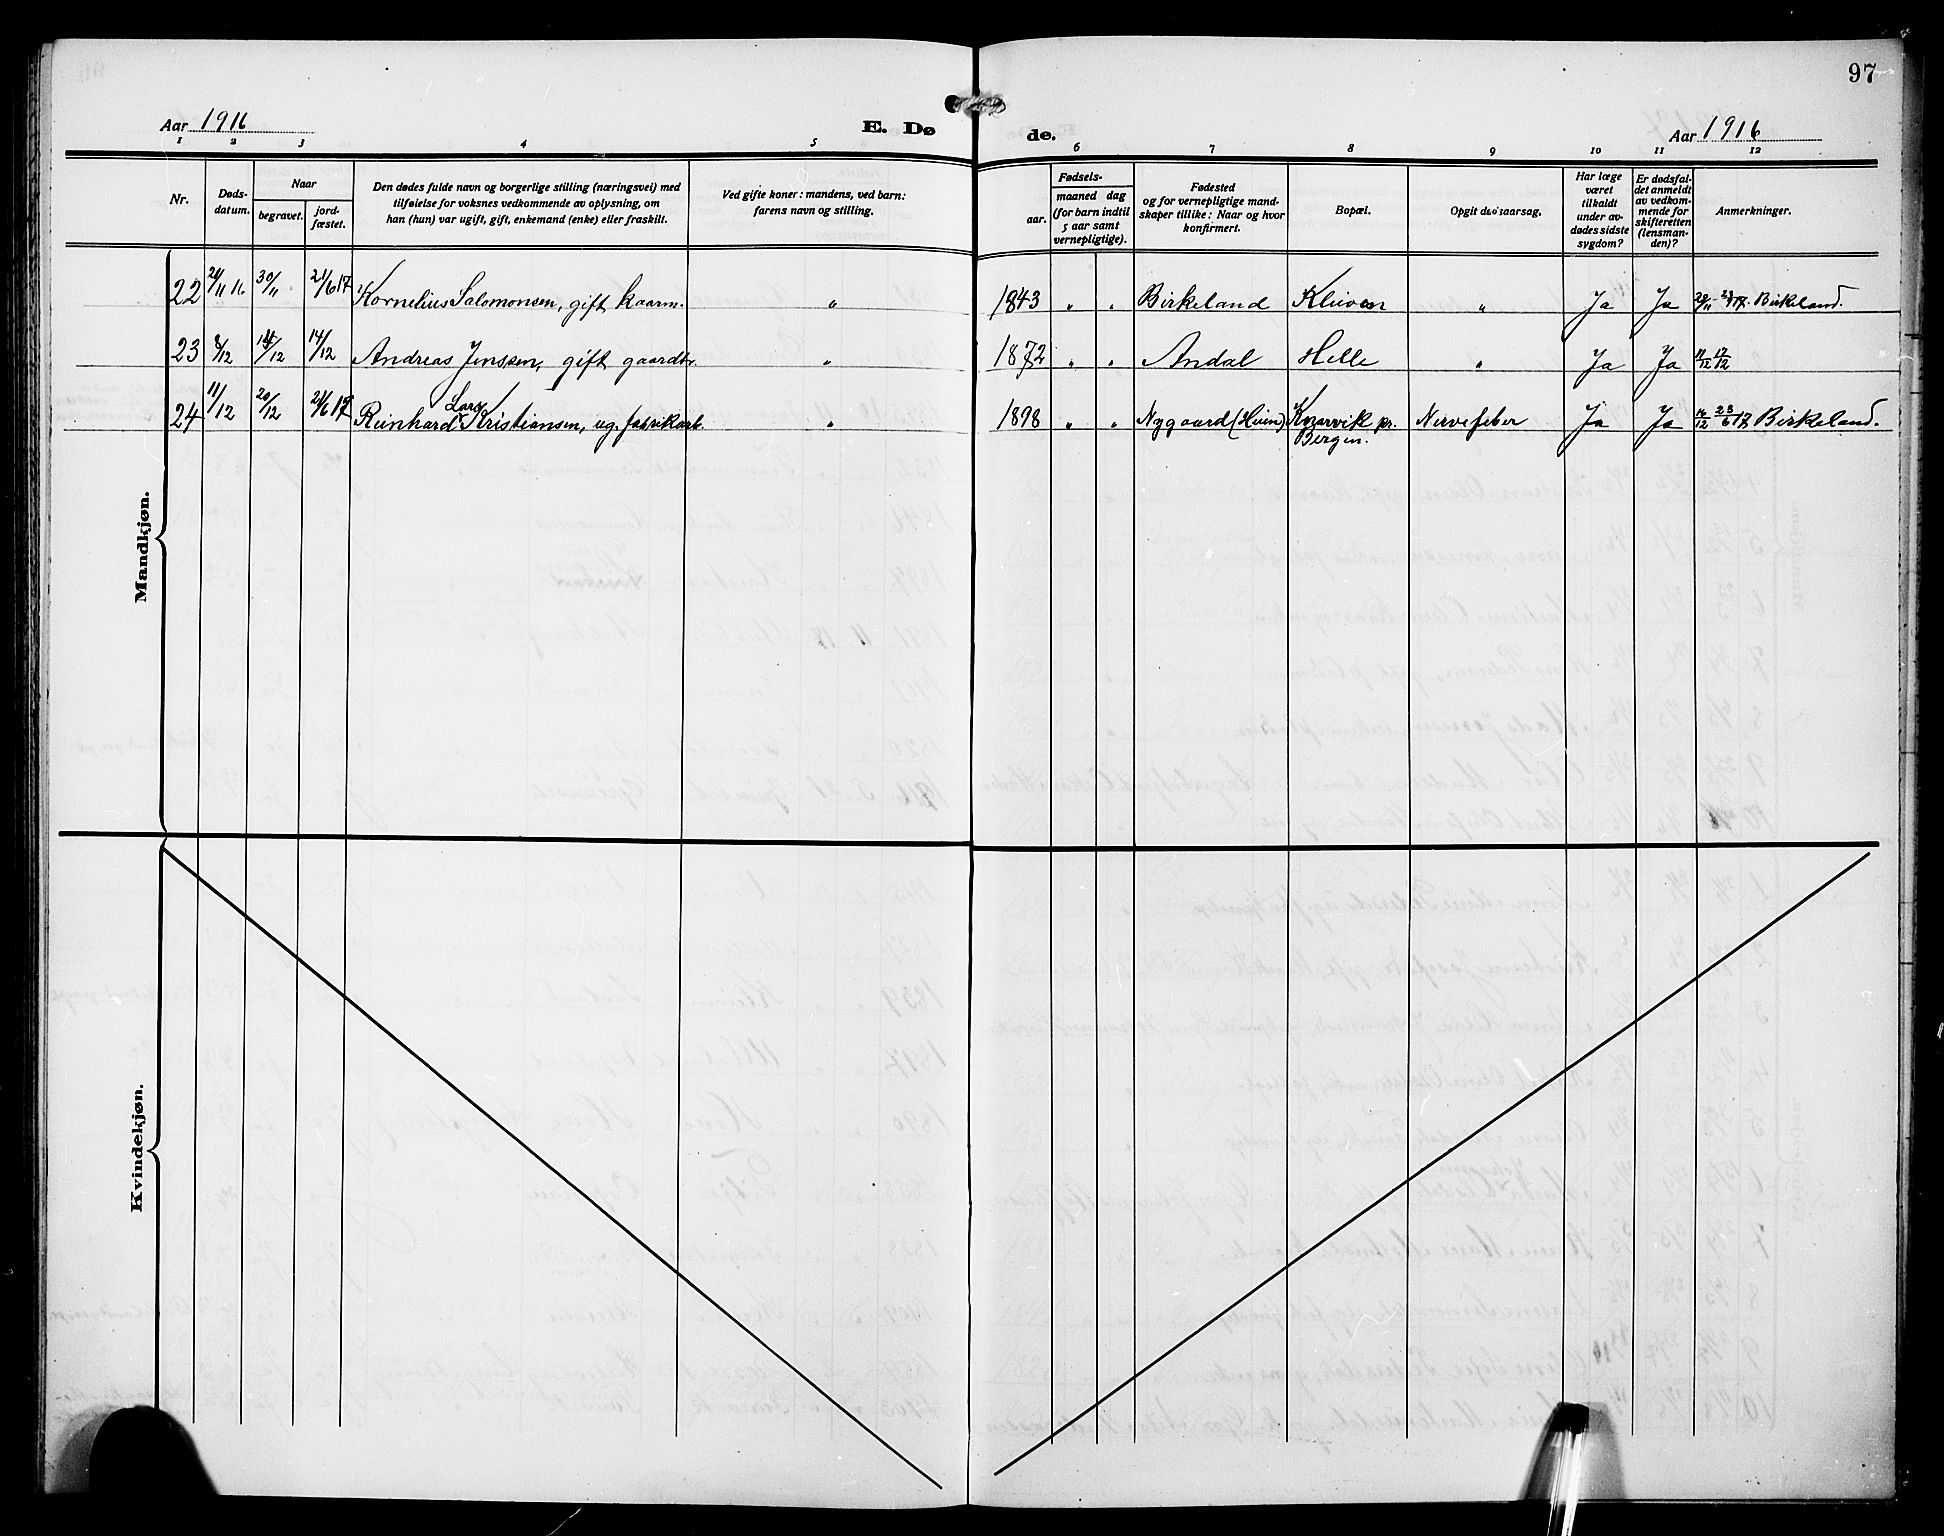 97
Aar 1916
E. Dø
de.
Aar 1916
1 2 3 4 5 6 7 8 9 10 11 12
Nr.
Døds-
datum.
Naar
begravet.
jord-
fæstet.
Den dødes fulde navn og borgerlige stilling (næringsvei) med
tilføielse for voksnes vedkommende av oplysning, om
han (hun) var ugift, gift, enkemand (enke) eller fraskilt.
Ved gifte koner: mandens, ved barn:
farens navn og stilling.
Fødsels-
aar.
maaned dag
(for barn indtil
5 aar samt
vernepligtige).
Fødested
og for vernepligtige mand-
skaper tillike: Naar og hvor
konfirmert.
Bopæl.
Opgit dødsaarsag.
Har læge
været
tilkaldt
under av-
dødes sidste
sygdom?
Er dødsfal-
det anmeldt
av vedkom-
mende for
skifteretten
(lensman-
den)?
Anmerkninger.
Mandkjøn.
22 30/11 21/6 17 Kornelius Salomonsen, gift kaarm. " 1843 " " Birkeland Kleven " Ja Ja Birkeland.
23 8/12 14/12 14/12 Andreas Jenssen, gift gaardbr. " 1872 " " Andal Helle " Ja Ja 17/12
Lars
24 11/12 20/12 24/6 17 Reinhard Kristiansen, ug. fabrikarb. " 1898 " " Nygaard (Heien) Knarvik pr. Nervefeber Ja Ja 16/12 23/6 17 Birkeland.
Bergen.
Kvindekjøn.